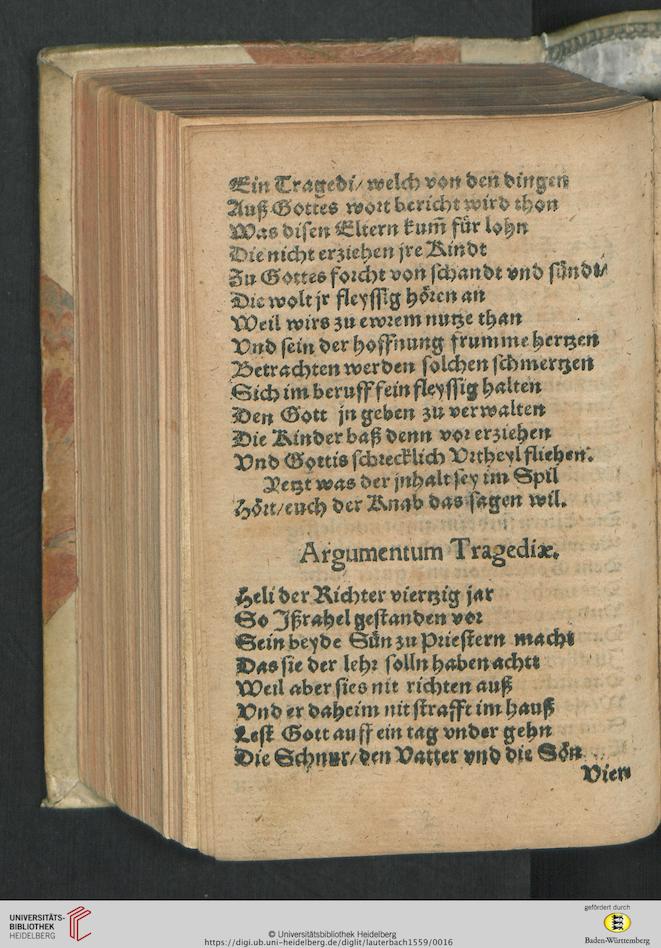 Ein Tragedi/ welch von den dingen
Auß Gottes wort bericht wird thon
Was disen Eltern kum̃ für lohn
Die nicht erziehen jre Kindt
Zu Gottes forcht von schandt vnd sündt/
Die wolt jr fleyssig hören an
Weil wirs zu ewrem nutze than
Vnd sein der hoffnung frumme hertzen
Betrachten werden solchen schmertzen
Sich im beruff fein fleyssig halten
Den Gott jn geben zu verwalten
Die Kinder baß denn vor erziehen
Vnd Gottis schrecklich Vrtheyl fliehen.
Yetzt was der jnhalt sey im Spil
Hört/ euch der Knab das sagen wil.
Argumentum Tragediæ.
Heli der Richter viertzig jar
So Jßrahel gestanden vor
Sein beyde Sün zu Priestern macht
Das sie der lehr solln haben achtt
Weil aber sies nit richten auß
Vnd er daheim nit strafft im hauß
Lest Gott auff ein tag vnder gehn
Die Schnur/ den Vatter vnd die Sön
Vier
UNIVERSITÄTS-
BIBLIOTHEK
HEIDELBERG
© Universitätsbibliothek Heidelberg
https://digi.ub.uni-heidelberg.de/diglit/lauterbach1559/0016
gefördert durch
Baden-Württemberg